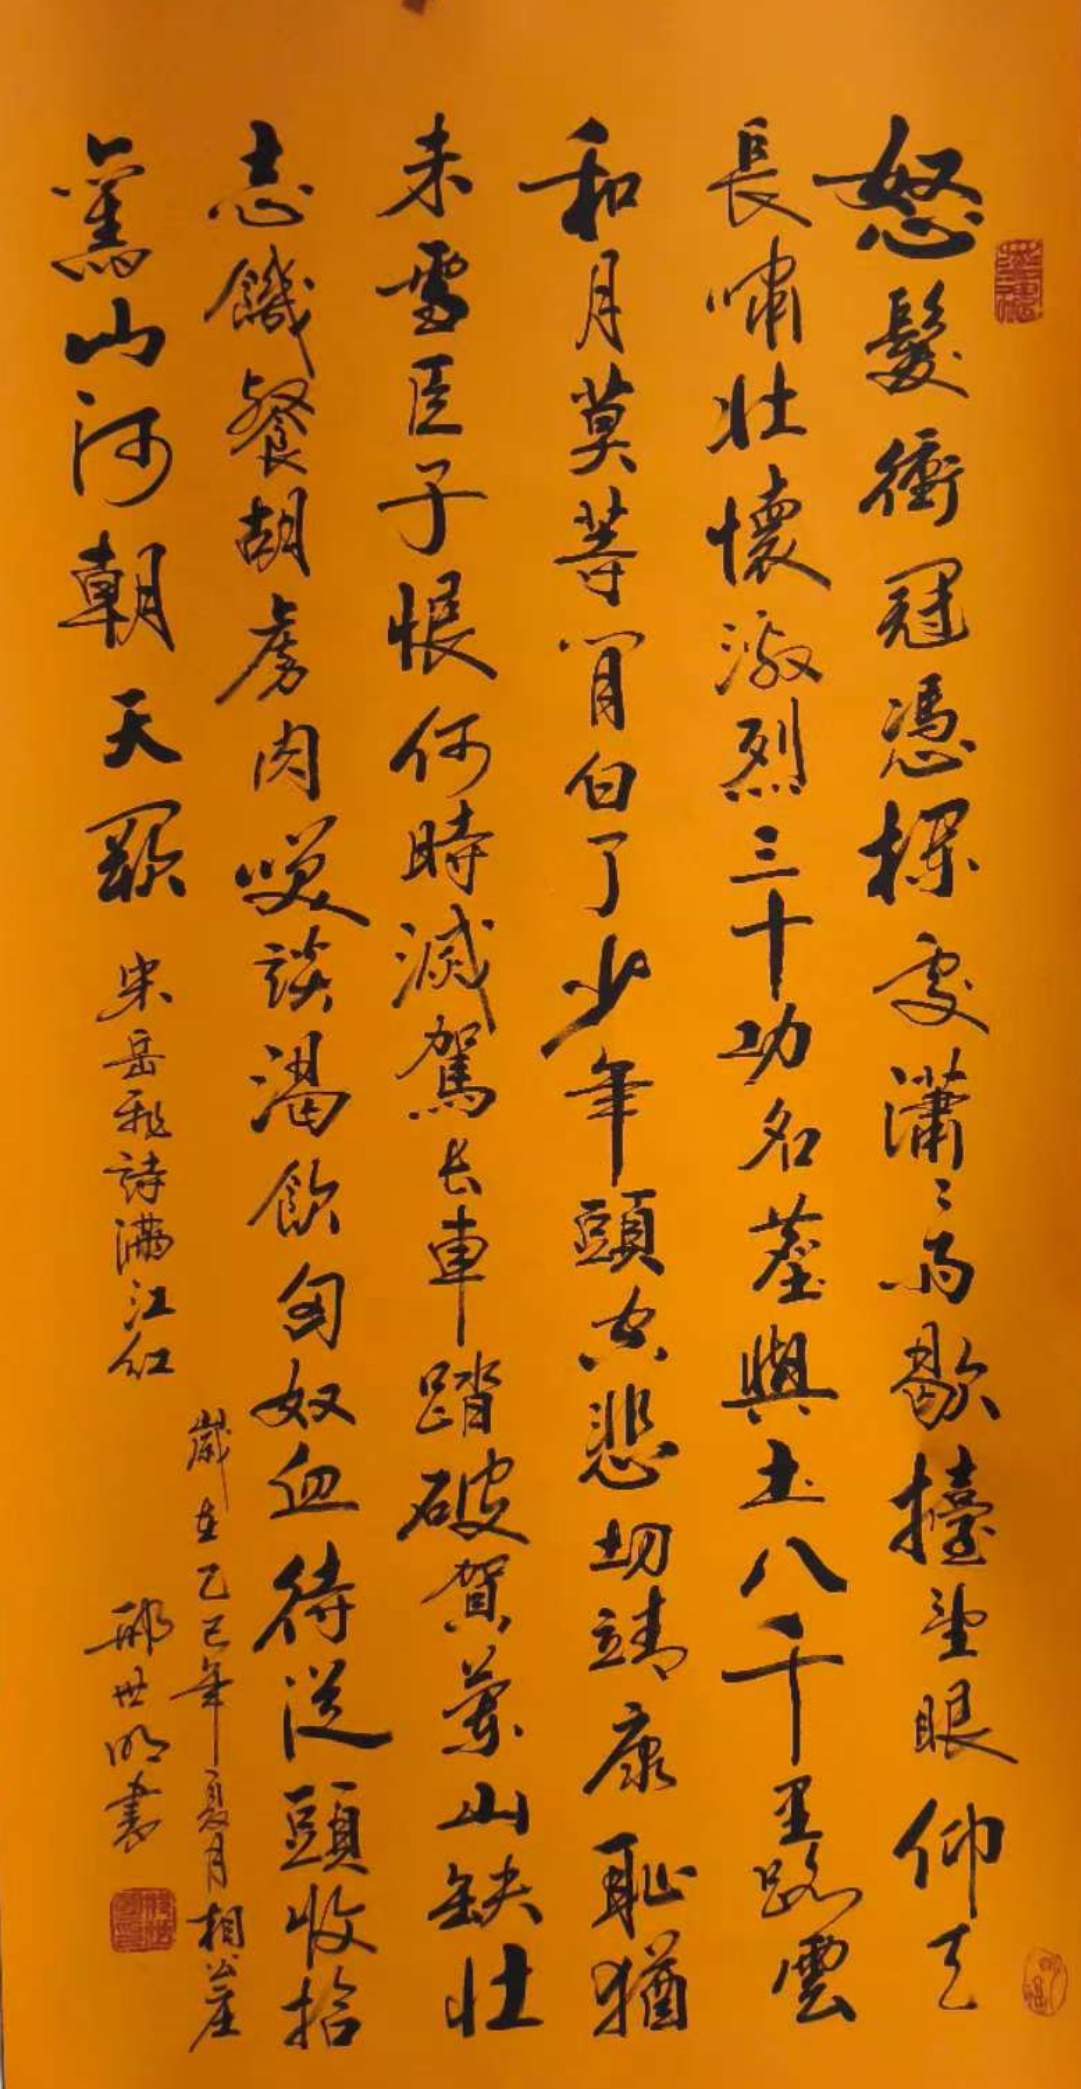 怒髮衝冠憑欄處瀟〻雨歇擡望眼仰天
長嘯壯懷激烈三十功名塵與土八千里路雲
和月莫等閒白了少年頭空悲切靖康恥猶
未雪臣子恨何時滅駕長車踏破賀蘭山缺壯
志饑餐胡虜肉笑談渴飲匈奴血待從頭收拾
舊山河朝天闕
宋岳飛詩滿江紅
歲在乙巳年夏月相
邢世明書